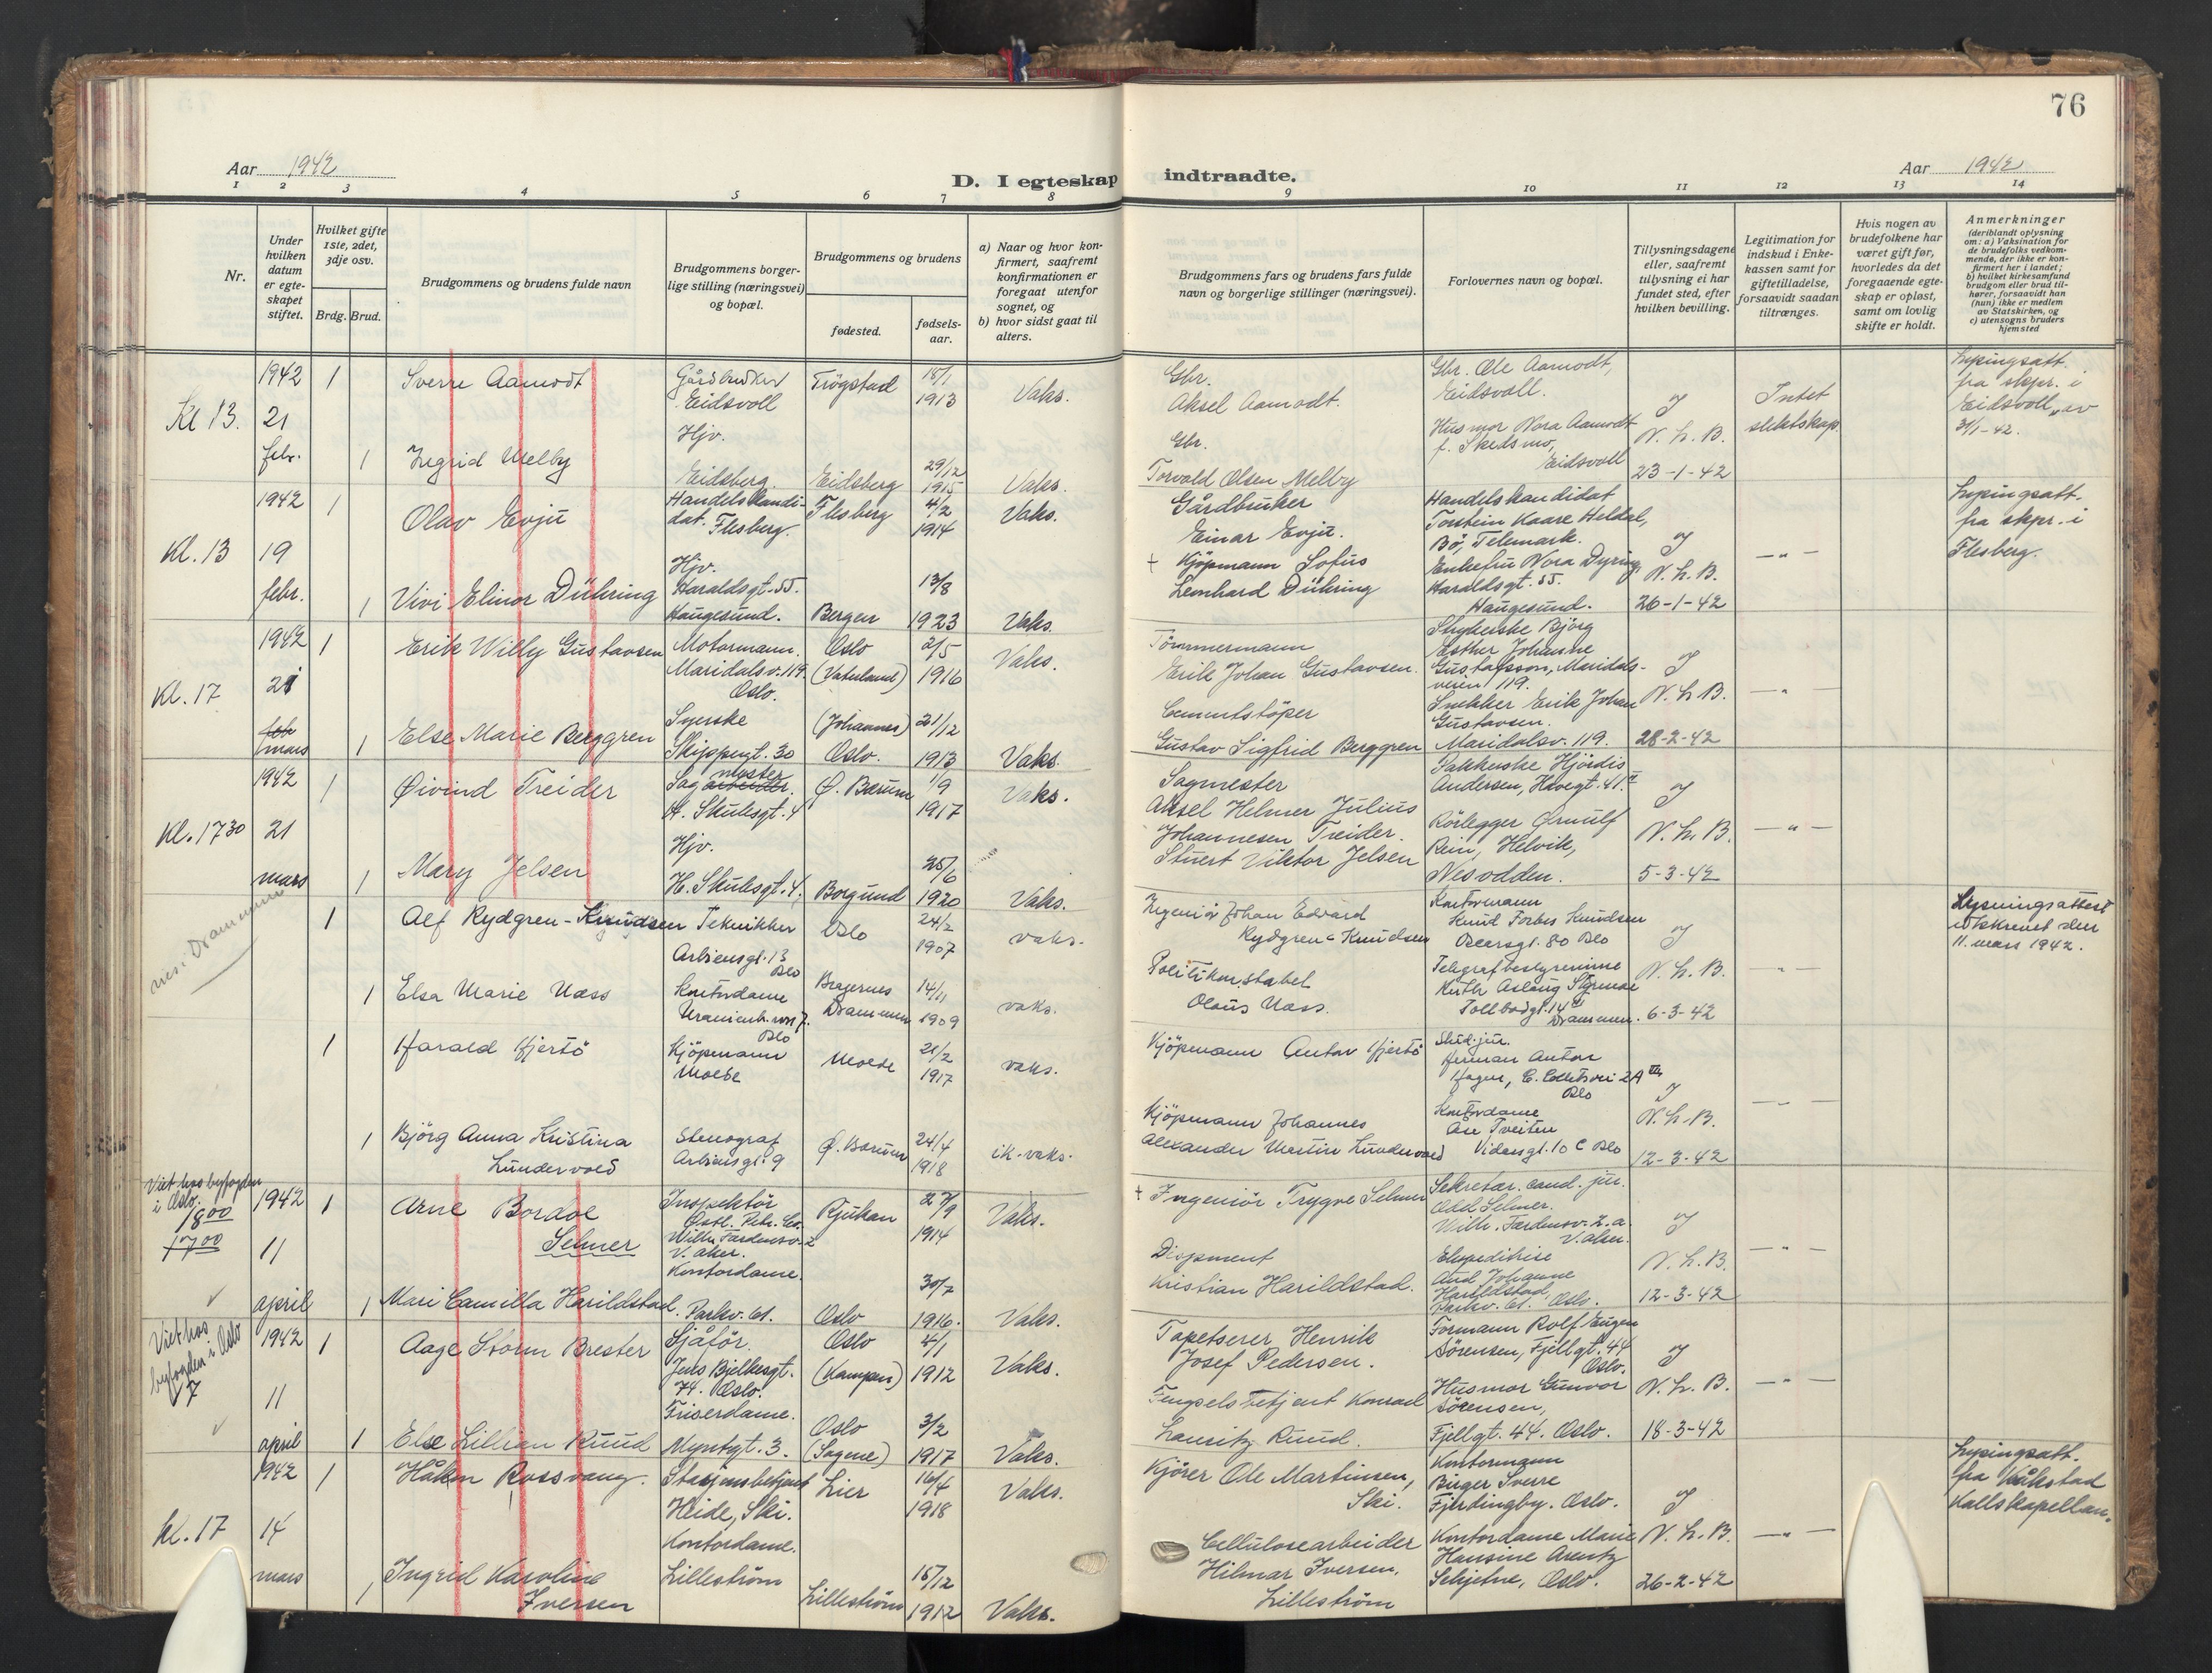 76
Aar 1942
D. I egteskap indtraadte.
Aar 1942
1 2 3 4 5 6 7 8 9 10 11 12 13 14
Nr.
Under hvilken datum er egteskapet stiftet.
Hvilket gifte 1ste, 2det, 3dje osv.
Brdg. Brud.
Brudgommens og brudens fulde navn
Brudgommens borgerlige stilling (næringsvei) og bopæl.
Brudgommens og brudens
fødested.
fødselsaar.
a) Naar og hvor konfirmert, saafremt konfirmationen er foregaat utenfor sognet, og
b) hvor sidst gaat til alters.
Brudgommens fars og brudens fars fulde navn og borgerlige stillinger (næringsvei).
Forlovernes navn og bopæl.
Tillysningsdagene eller, saafremt tillysning ei har fundet sted, efter hvilken bevilling.
Legitimation for indskud i Enkekassen samt for giftetilladelse, forsaavidt saadan tiltrænges.
Hvis nogen av brudefolkene har været gift før, hvorledes da det foregaaende egteskap er opløst, samt om lovlig skifte er holdt.
Anmerkninger
(deriblandt oplysning om: a) Vaksination for de brudefolks vedkommende, der ikke er konfirmert her i landet;
b) hvilket kirkesamfund brudgom eller brud tilhører, forsaavidt han (hun) ikke er medlem av Statskirken, og
c) utensogns bruders hjemsted
Kl 13. 1942 21 febr.
1 Sverre Aamodt Gårdbruker Eidsvoll Trögstad 18/1 1913 Vaks.
Gbr. Aksel Aamodt.
Gbr. Ole Aamodt, Eidsvoll.
1 Ingrid Melby Hjv. Eidsberg. Eidsberg 29/12 1915 Vaks.
Gbr. Torvald Olsen Melby
Husmor Nora Aamodt f. Skedsmo, Eidsvoll
J N. L. B. 23-1-42
Intet slektskap.
Lysingsatt. fra skpr. i Eidsvoll av 31/1-42.
Kl. 13 1942 19 febr.
1 Olav Evju Handelskandidat. Flesberg. Flesberg 4/2 1914 Vaks.
Gårdbruker Einar Evju.
Handelskandidat Torstein Kaare Heldal, Bö, Telemark.
1 Vivi Elinor Dühring Hjv. Haraldsgt. 55. Haugesund. Bergen 13/8 1923 Vaks.
+ Kjöpmann Sofus Leonhard Dühring
Enkefru Nora Dyring, Haraldsgt. 55. Haugesund.
J N. L. B. 26-1-42
— " —
Lysingsatt. fra skpr. i Flesberg.
Kl. 17 1942 21 feb mars
1 Erik Willy Gustavsen Motormann. Maridalsv. 119. Oslo. Oslo (Vaterland) 2/5 1916 Vaks.
Tömmermann Erik Johan Gustavsen.
Strykerske Björg Esther Johanne Gustafsson, Maridalsveien 119.
1 Else Marie Berggren Syerske Skippergt. 30 (Johannes) Oslo. 21/12 1913 Vaks
Cementstöper Gustav Sigfrid Berggren
Snekker Erik Johan Gustavsen. Maridalsv. 119.
J N. L. B. 28-2-42
— " —
Kl. 17 30 1942 21 mars
1 Øivind Treider Sagarbeider. mester H. Skulesgt. 4 Ø. Bærum 1/9 1917 Vaks.
Sagmester Aksel Helmer Julius Johannesen Treider.
Pakkerske Hjördis Andersen, Havegt. 41 II
1 Mary Jelsen Hjv. H. Skulesgt. 4. Borgund 25/6 1920 Vaks.
Stuert Viktor Jelsen
Rörlegger Ørnulf Rein, Helvik, Nesodden.
J N. L. B. 5-3-42
— " —
1 Alf Rydgren-Knudsen Tekniker Arbiensgt. 13 Oslo Oslo 24/2 1907 vaks.
Ingeniör Johan Edvard Rydgren-Knudsen
Kontormann Knud Forbes Knudsen Oscarsgt. 80 Oslo
1 Elsa Marie Næss Kontordame Bragernes Drammen 14/11 1909 vaks.
Politikonstabel Olaus Næss.
Telegrafbestyrerinne Ruth Aslaug Styrmoe Tollbodgt. 14 Drammen.
J N. L. B. 6-3-42
— " —
Lysningsattest utskrevet den 11. mars 1942.
1 Harald Hjertö Kjöpmann Molde Molde 21/2 1917 vaks.
Kjöpmann Anton Hjertö
Stud. jur. Herman Anton Hagen, C. Collettsvei 2A III Oslo
1 Björg Anna Kristina Lundervold Stenograf Arbiensgt. 9 Ø. Bærum 24/4 1918 ik. vaks.
Kjöpmann Johannes Alexander Martin Lundervold
Kontordame Åse Tveiten Vidarsgt. 10 C Oslo
J N. L. B. 12-3-42
— " —
Viet hos byfogden i Oslo. 18 00 17 00 1942 11 april
1 Arne Bordoe Selmer Inspektör Östl. Petr. Co. Wilh. Færdensv. 2 V. Aker. Rjukan 27/9 1914 Vaks.
+ Ingeniör Trygve Selmer
Sekretær. cand. jur. Odd Selmer. Wilh. Færdensv. 2.a. V. Aker.
1 Mari Camilla Harildstad Kontordame. Parkv. 61. Oslo 30/7 1916. Vaks.
Disponent Kristian Harildstad.
Ekspeditrise Aud Johanne Harildstad, Parkv. 61. Oslo.
J N. L. B. 12-3-42
— " —
Viet hos byfogden i Oslo 1942 11 april
1 Aage Storm Brester Sjåför. Jens Bjelkesgt. 74. Oslo. Oslo (Kampen) 4/1 1912 Vaks.
Tapetserer Henrik Josef Pedersen.
Formann Rolf Eugen Sörensen, Fjellgt. 44 Oslo.
1 Else Lillian Ruud Friserdame. Myntgt. 3. Oslo (Sagene) 3/2 1917 Vaks.
Fengselsbetjent Konrad Lauritz Ruud.
Husmor Gunvor Sörensen, Fjellgt. 44. Oslo.
J N. L. B. 18-3-42
— " —
Kl. 17 1942 14 mars
1 Håkon Rossvang. Stasjonsbetjent Heide, Ski. Lier 16/4 1918 Vaks.
Kjörer Ole Martinsen, Ski.
Kontormann Birger Sverre Fjerdingby. Oslo.
1 Ingrid Karoline Iversen Kontordame. Lilleström Lilleström 15/12 1912 Vaks.
Cellulosearbeider Hilmar Iversen, Lilleström
Kontordame Marie Hansine Arentz Schjetne, Oslo.
J N. L. B. 26-2-42
— " —
Lysingsatt. fra Kråkstad Kallskapellan.